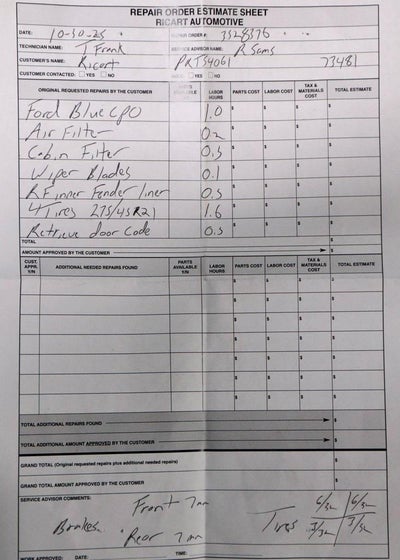 REPAIR ORDER ESTIMATE SHEET
RICART AUTOMOTIVE
DATE: 10-30-25 REPAIR ORDER #: 3528376
TECHNICIAN NAME: T Frank SERVICE ADVISOR NAME: R Sams
CUSTOMER'S NAME: Ricart PRT34061 73481
CUSTOMER CONTACTED: YES NO YES NO
ORIGINAL REQUESTED REPAIRS BY THE CUSTOMER PARTS AVAILABLE LABOR HOURS PARTS COST LABOR COST TAX & MATERIALS COST TOTAL ESTIMATE
Ford Blue CPO 1.0 $ $ $ $
Air Filter 0.2 $ $ $ $
Cabin Filter 0.5 $ $ $ $
Wiper Blades 0.1 $ $ $ $
RF inner Fender liner 0.5 $ $ $ $
4 Tires 275/45R21 1.6 $ $ $ $
Retrieve door Code 0.5 $ $ $ $
TOTAL $
AMOUNT APPROVED BY THE CUSTOMER $
CUST. APPR. Y/N ADDITIONAL NEEDED REPAIRS FOUND PARTS AVAILABLE Y/N LABOR HOURS PARTS COST LABOR COST TAX & MATERIALS COST TOTAL ESTIMATE
$ $ $ $
$ $ $ $
$ $ $ $
$ $ $ $
$ $ $ $
$ $ $ $
$ $ $ $
TOTAL ADDITIONAL REPAIRS FOUND $
TOTAL ADDITIONAL AMOUNT APPROVED BY THE CUSTOMER $
GRAND TOTAL (Original requested repairs plus additional needed repairs) $
GRAND TOTAL AMOUNT APPROVED BY THE CUSTOMER $
SERVICE ADVISOR COMMENTS:
Front 7mm 6/32 6/32
Brakes Tires
Rear 7mm 3/32 3/32
WORK APPROVED: DATE: TIME: